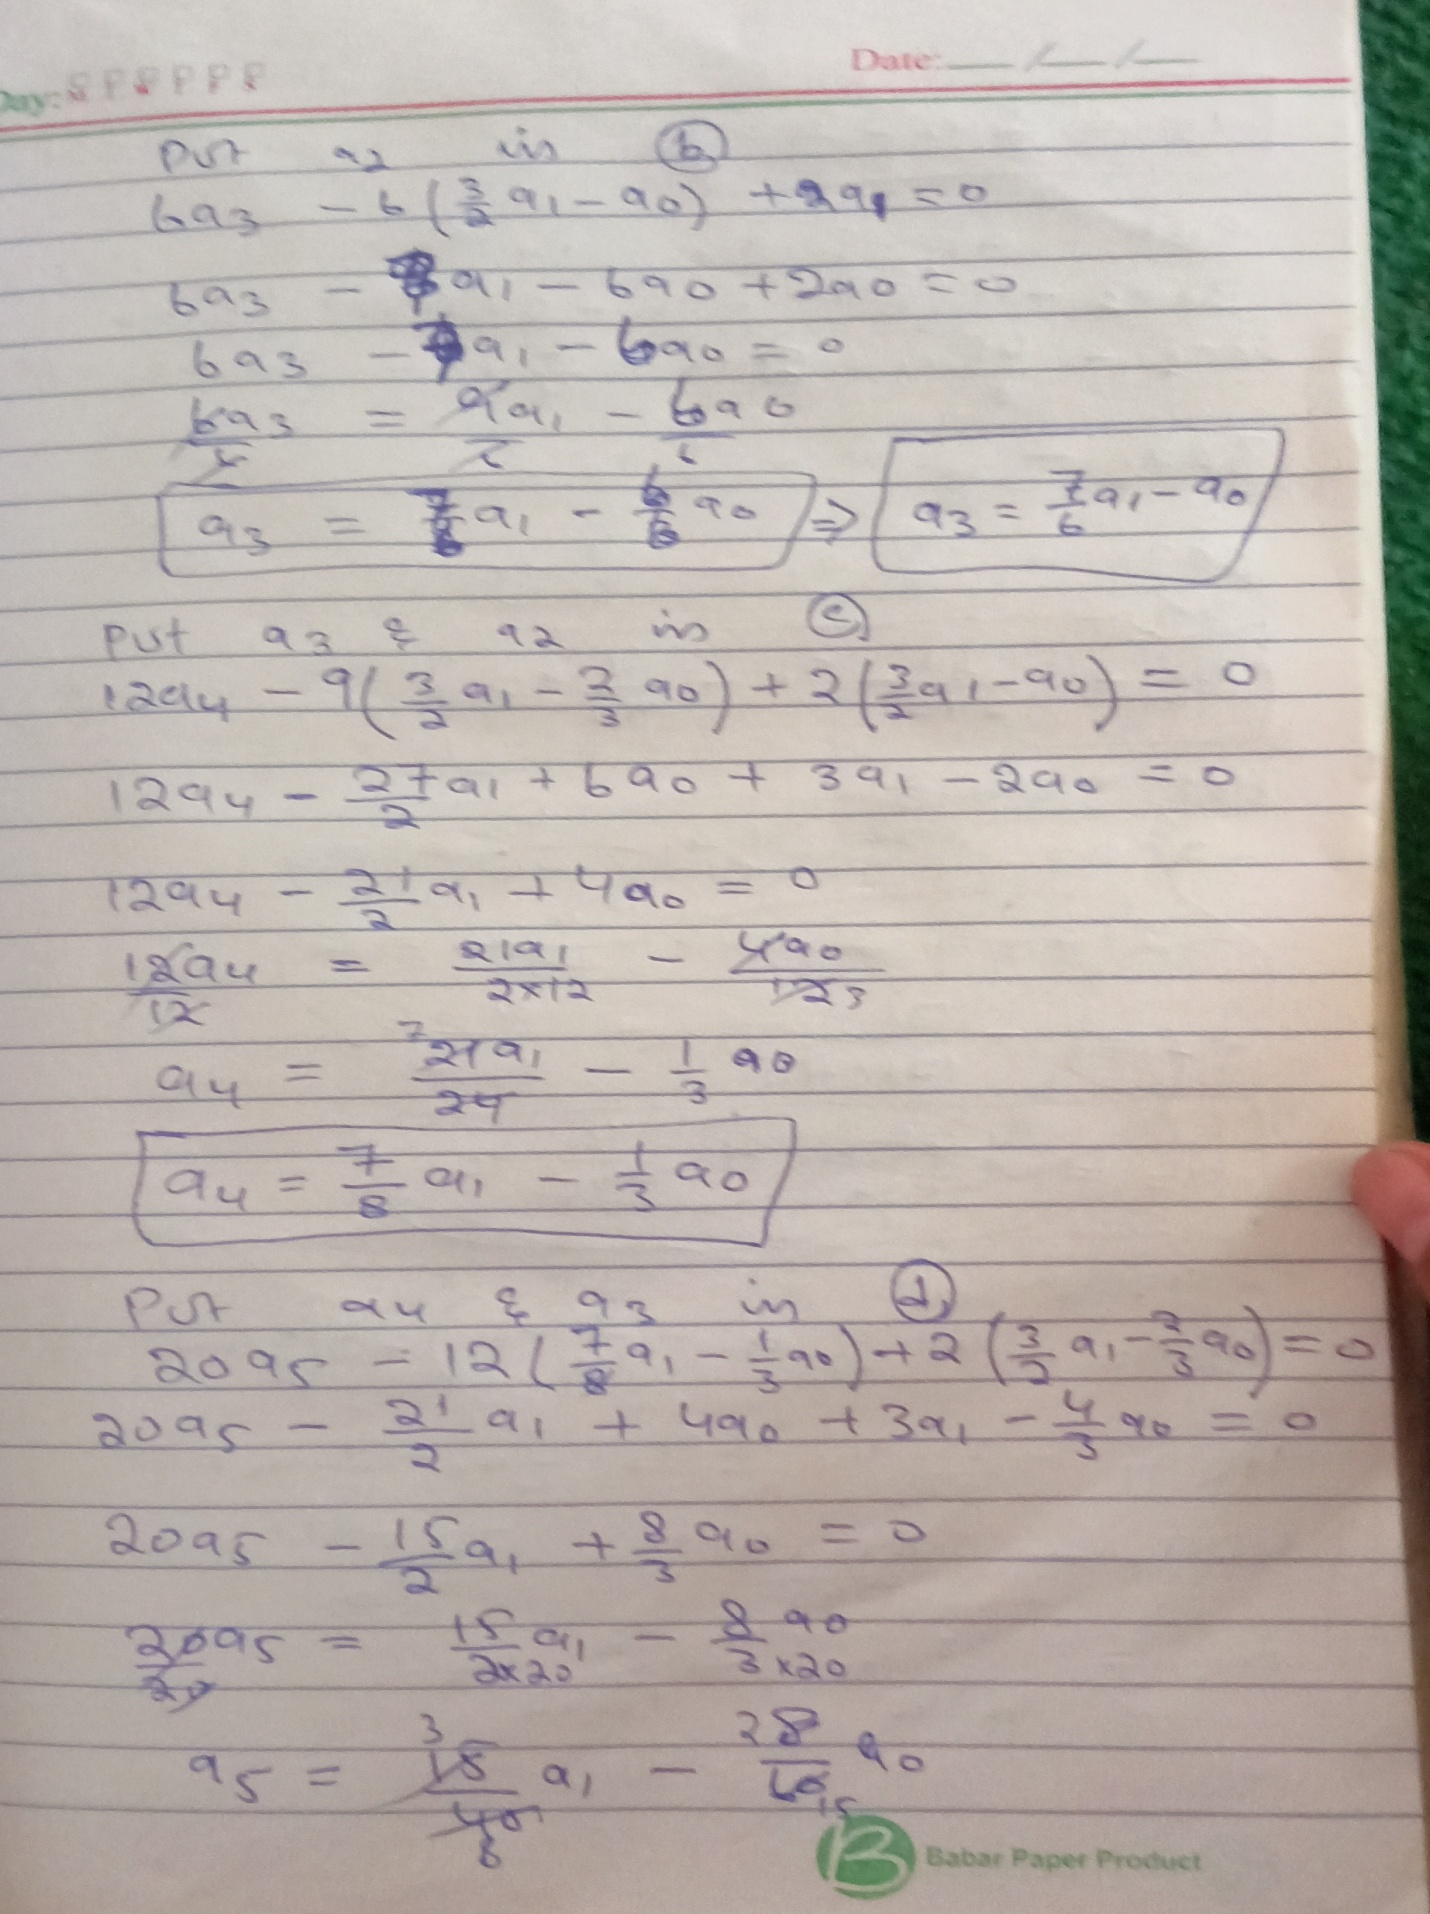 Day:
Date:
Put a2 in (b)
6a3 - 6(3/2 a1 - a0) + 2a1 = 0
6a3 - a1 - 6a0 + 2a0 = 0
6a3 - 7a1 - 6a0 = 0
6a3/6 = 7a1/6 - 6a0/6
a3 = 7/6 a1 - 6/6 a0 ⇒ a3 = 7/6 a1 - a0
Put a3 & a2 in (c)
12a4 - 9(3/2 a1 - 2/3 a0) + 2(3/2 a1 - a0) = 0
12a4 - 27/2 a1 + 6a0 + 3a1 - 2a0 = 0
12a4 - 21/2 a1 + 4a0 = 0
12a4/12 = 21a1/2×12 - 4a0/12 3
a4 = 7 21a1/24 - 1/3 a0
a4 = 7/8 a1 - 1/3 a0
Put a4 & a3 in (d)
20a5 - 12(7/8 a1 - 1/3 a0) + 2(3/2 a1 - 2/3 a0) = 0
20a5 - 21/2 a1 + 4a0 + 3a1 - 4/3 a0 = 0
20a5 - 15/2 a1 + 8/3 a0 = 0
20a5/20 = 15/2×20 a1 - 8/3×20 a0
a5 = 3 15/40 8 a1 - 2 8/60 15 a0
B Babar Paper Product